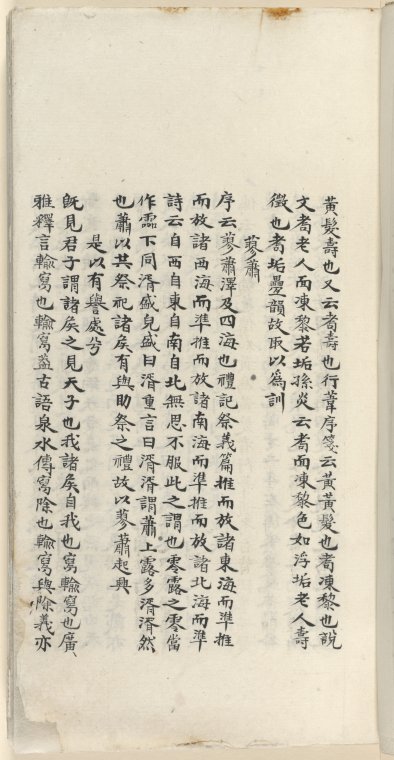 黃髮壽也又云耇壽也行葦序箋云黃黃髮也耇凍黎也說
文耇老人面凍黎若垢孫炎云耇面凍黎色如浮垢老人壽
徵也耇垢疊韻故取以為訓
蓼蕭
序云蓼蕭澤及四海也禮記祭義篇推而放諸東海而準推
而放諸西海而準推而放諸南海而準推而放諸北海而準
詩云自西自東自南自北無思不服此之謂也零露之零當
作霝下同湑盛皃盛曰湑重言曰湑湑謂蕭上露多湑湑然
也蕭以其祭祀諸矦有與助祭之禮故以蓼蕭起興
是以有譽處兮
旣見君子謂諸矦之見天子也我諸矦自我也寫輸寫也廣
雅釋言輸寫也輸寫蓋古語泉水傳寫除也輸寫與除義亦